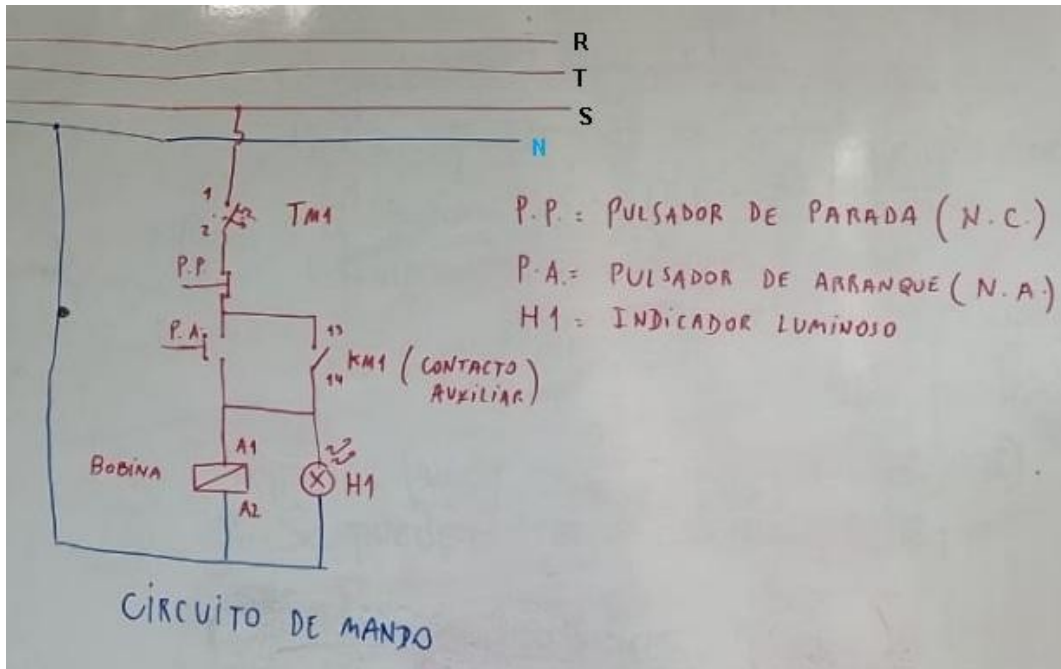 R
T
S
N
1
2
TM1
P.P.
P.A.
13
14
KM1 (CONTACTO
AUXILIAR)
BOBINA
A1
A2
H1
P.P. = PULSADOR DE PARADA (N.C.)
P.A. = PULSADOR DE ARRANQUE (N.A.)
H1 = INDICADOR LUMINOSO
CIRCUITO DE MANDO